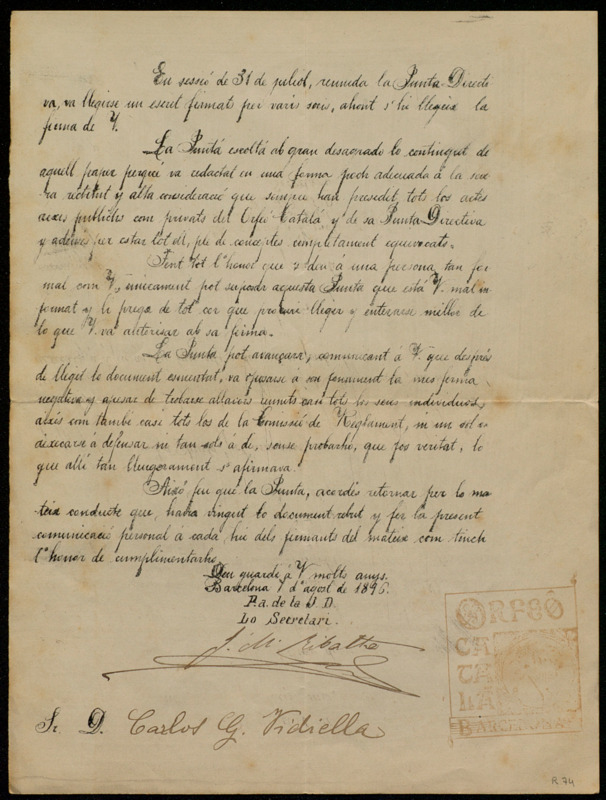 En sessió de 31 de juliol, reunida la Junta Directi
va, va llegirse un escrit firmats per varis socis, ahont s'hi llegeix la
firma de V.
La Junta escoltá ab gran desagrado lo contingut de
aquell paper perqué va redactat en una forma poch adecuada á la seve
ra rectitut y alta consideració que sempre han presedit tots los actes
aixis publichs com privats del Orfeó Catalá y de sa Junta Directiva
y ademés per estar tot ell, ple de conceptes completament equivocats.
Tent tot l'honor que 's deu á una persona tan for
mal com V, unicament pot suposar aquesta Junta que está V. mal in
format y li prega de tot cor que procuri llegir y enterarse millor de
lo que V. va autorisar ab sa firma.
La Junta pot avançarli, comunicant á V. que després
de llegit lo document esmentat, va oposarse á son fonament la mes ferma
negativa y apesar de trobarse allavors reunits casi tots los seus individuos,
aixis com també casi tots los de la Comissió de Reglament, ni un sol va
aixecarse á defensar ni tan sols á dir, sense probarho, que fos veritat, lo
que allí tan lleugerament s'afirmava.
Aixó feu que la Junta, acordés retornar per lo ma
teix conducte que, habia vingut lo document rebut y fer la present
comunicació personal á cada hu dels firmants del mateix com tinch
l'honor de cumplimentarho.
Deu guarde á V molts anys.
Barcelona 1 d'agost de 1896.
P.a. de la J. D.
Lo Secretari.
J. M. Ribalta
Sr. D. Carlos G. Vidiella
ORFEÓ
CA
TA
LÁ
BARCELONA
R. 74